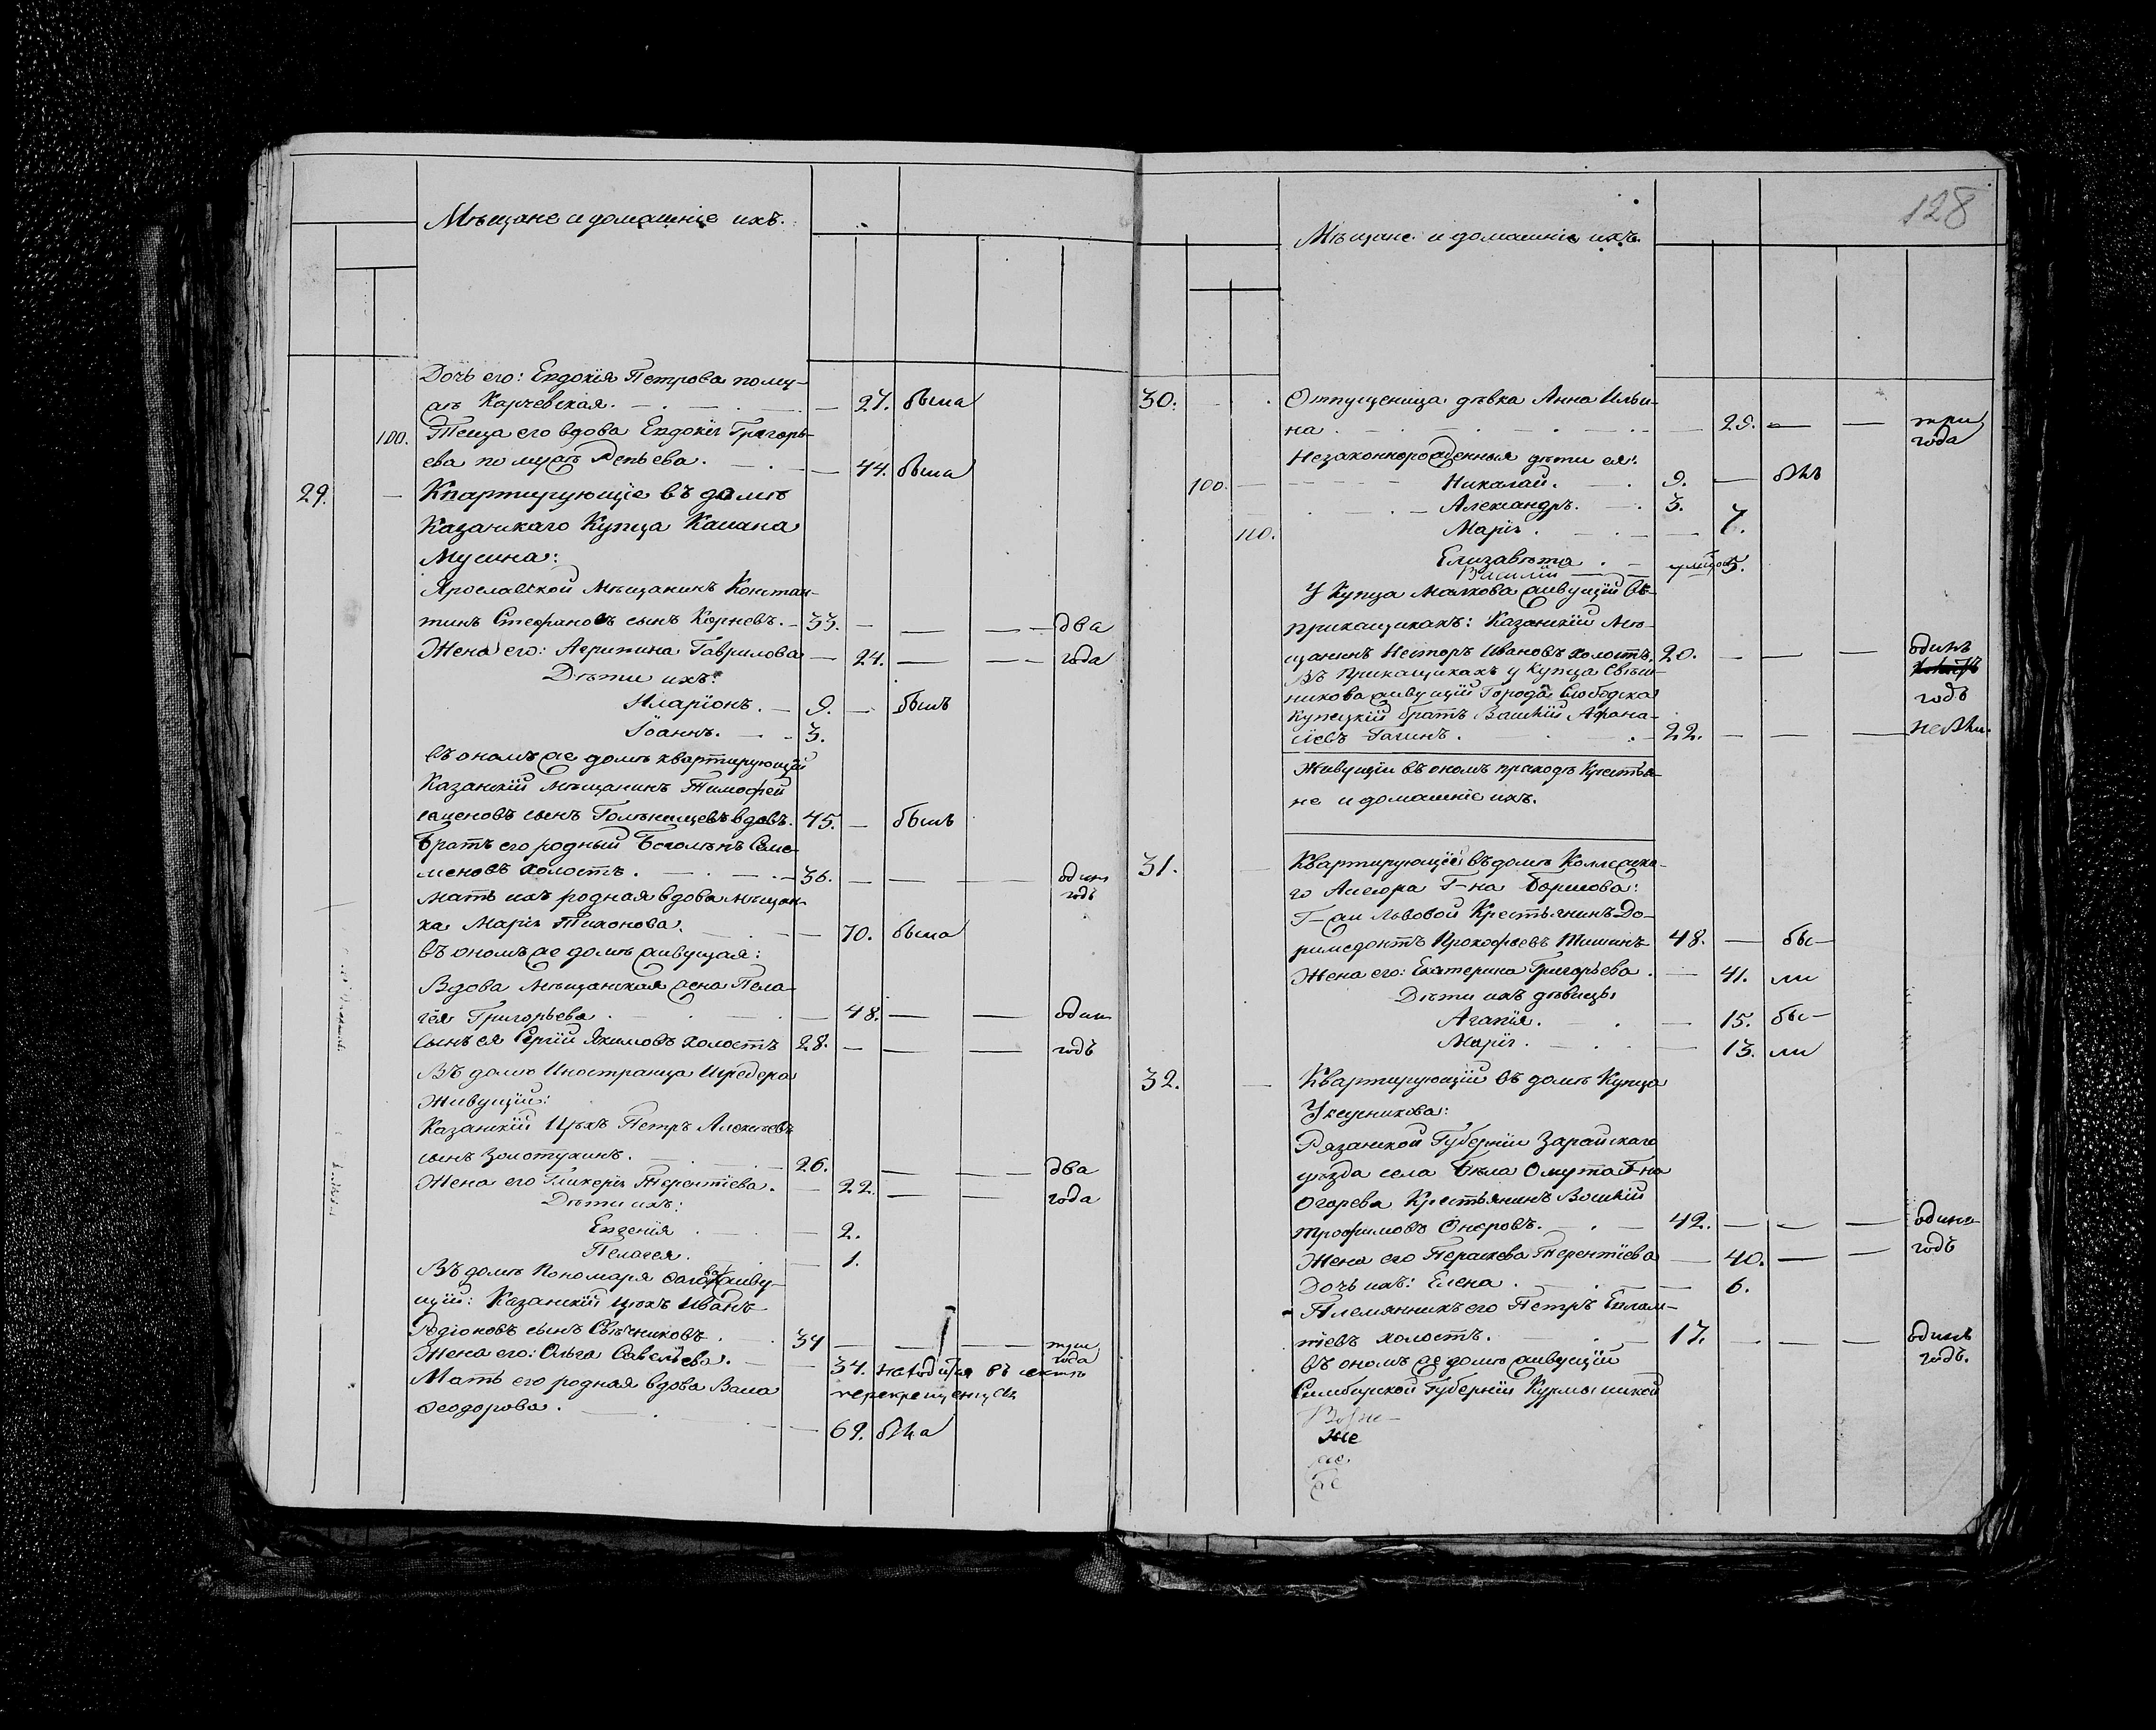 Мѣщане и домашніе ихъ.
Дочь его: Евдокія Петрова по му-
жѣ Карчевская. 27. была
100. Теща его вдова Евдокія Григорь-
ева по мужѣ 44. была
29. Квартирующіе въ домѣ
Казанскаго Купца
Мусина:
Ярославской мѣщанинъ Констан-
тинъ Стефановъ сынъ Корневъ. 33. два
Жена его: Гаврилова 24. года
Дѣти ихъ:
Иларіонъ. 9. былъ
Іоаннъ. 3.
въ ономъ же домѣ квартирующій
Казанскій мѣщанинъ Тимофей
сынъ вдовъ. 45. былъ
Братъ его родный Семе-
меновъ холостъ. 36. одинъ годъ
Мать ихъ родная вдова мѣщан-
ка Марія Тихонова. 70. была
въ ономъ же домѣ живущая:
Вдова мѣщанская жена Пела-
гея Григорьева 48. одинъ
сынъ ея Сергій Якимовъ холостъ 28. годъ
Въ домѣ Иностранца Шредера
Живущіи:
Казанскій Цѣхъ Петръ Алексѣевъ
сынъ Золотухинъ. 26. два
Жена его Гликерія Терентіева. 22. года
Дѣти ихъ:
Евгенія 2.
Пелагея. 1.
Въ домѣ Пономаря живу-
щій: Казанскій цѣхъ Иванъ
Родіоновъ сынъ Свѣчниковъ. 34 три
Жена его: Ольга Савельева. 34. года находится въ сектѣ
Мать его родная вдова Васса перекрещенцевъ
Ѳеодорова. 69. была
128
Мѣщане и домашніе ихъ.
30. Отпущеница дѣвка Анна Ильи-
на 29. три года
Незаконнорожденныя дѣти ея:
100. Николай. 9. былъ
Александръ. 3.
110. Марія. 7.
Елизавета 5.
Василій
У Купца Малкова живущій въ
прикащикахъ: Казанскій мѣ-
щанинъ Несторъ Ивановъ холостъ. 20. одинъ
Въ Прикащикахъ у Купца Свѣш-
никова живущій Города Слободска годъ
Купецкій братъ Василій Афана-
сіевъ 22. не былъ.
Живущіи въ ономъ приходѣ Крестья-
не и домашніе ихъ.
31. Квартирующіе въ домѣ Коллежска-
го Асесора Г-на Борисова:
Г-жи Львовой Крестьянинъ До-
римедонтъ Прокофьевъ 48. бы-
Жена его: Екатерина Григорьева. 41. ли
Дѣти ихъ дѣвицы
Агапія. 15. бы-
Марія. 13. ли
32. Квартирующіи въ домѣ Купца
Рязанской Губерніи Зарайскаго
уѣзда села Бѣла Омута Г-на
Огарева Крестьянинъ Василій
Трофимовъ 42. одинъ
Жена его Параскева Терентіева 40. годъ
Дочь ихъ: Елена. 6.
Племянникъ его Петръ Евлам-
піевъ холостъ. 17. одинъ
въ ономъ же домѣ живущіи годъ.
Симбирской Губерніи Курмышской